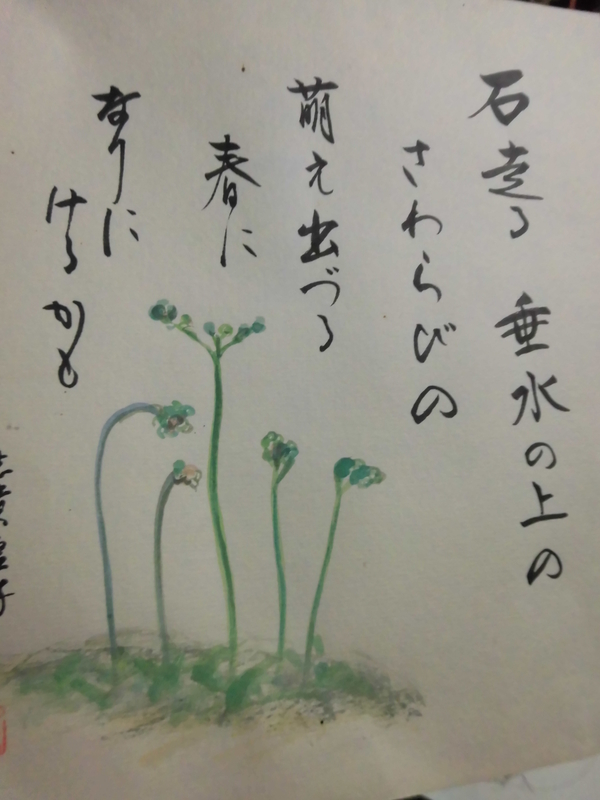 石走る 垂水の上の
さわらびの
萌え出づる
春に
なりに
けるかも